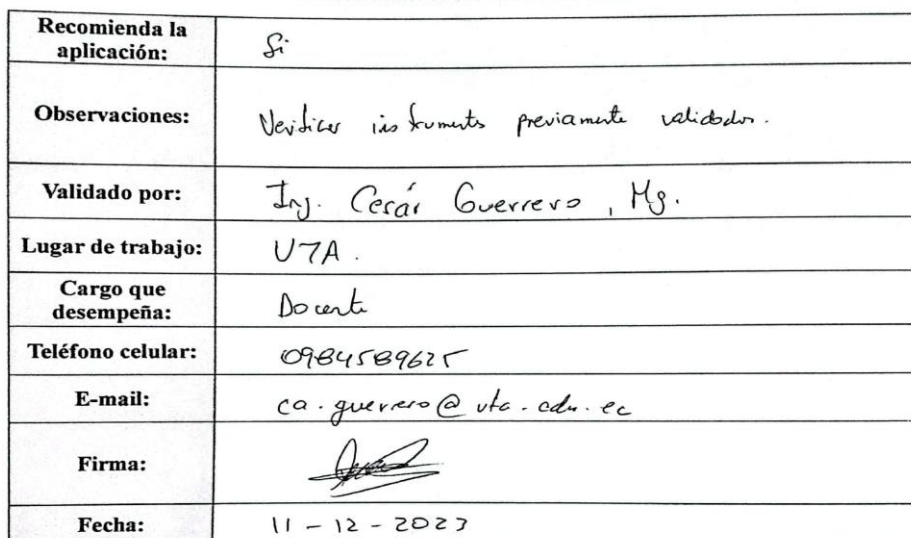 Recomienda la
aplicación: Si
Observaciones: Verificar instrumentos previamente validados.
Validado por: Ing. Cesár Guerrero, Mg.
Lugar de trabajo: UTA.
Cargo que
desempeña: Docente
Teléfono celular: 0984589625
E-mail: ca.guerrero@uta.edu.ec
Firma:
Fecha: 11-12-2023